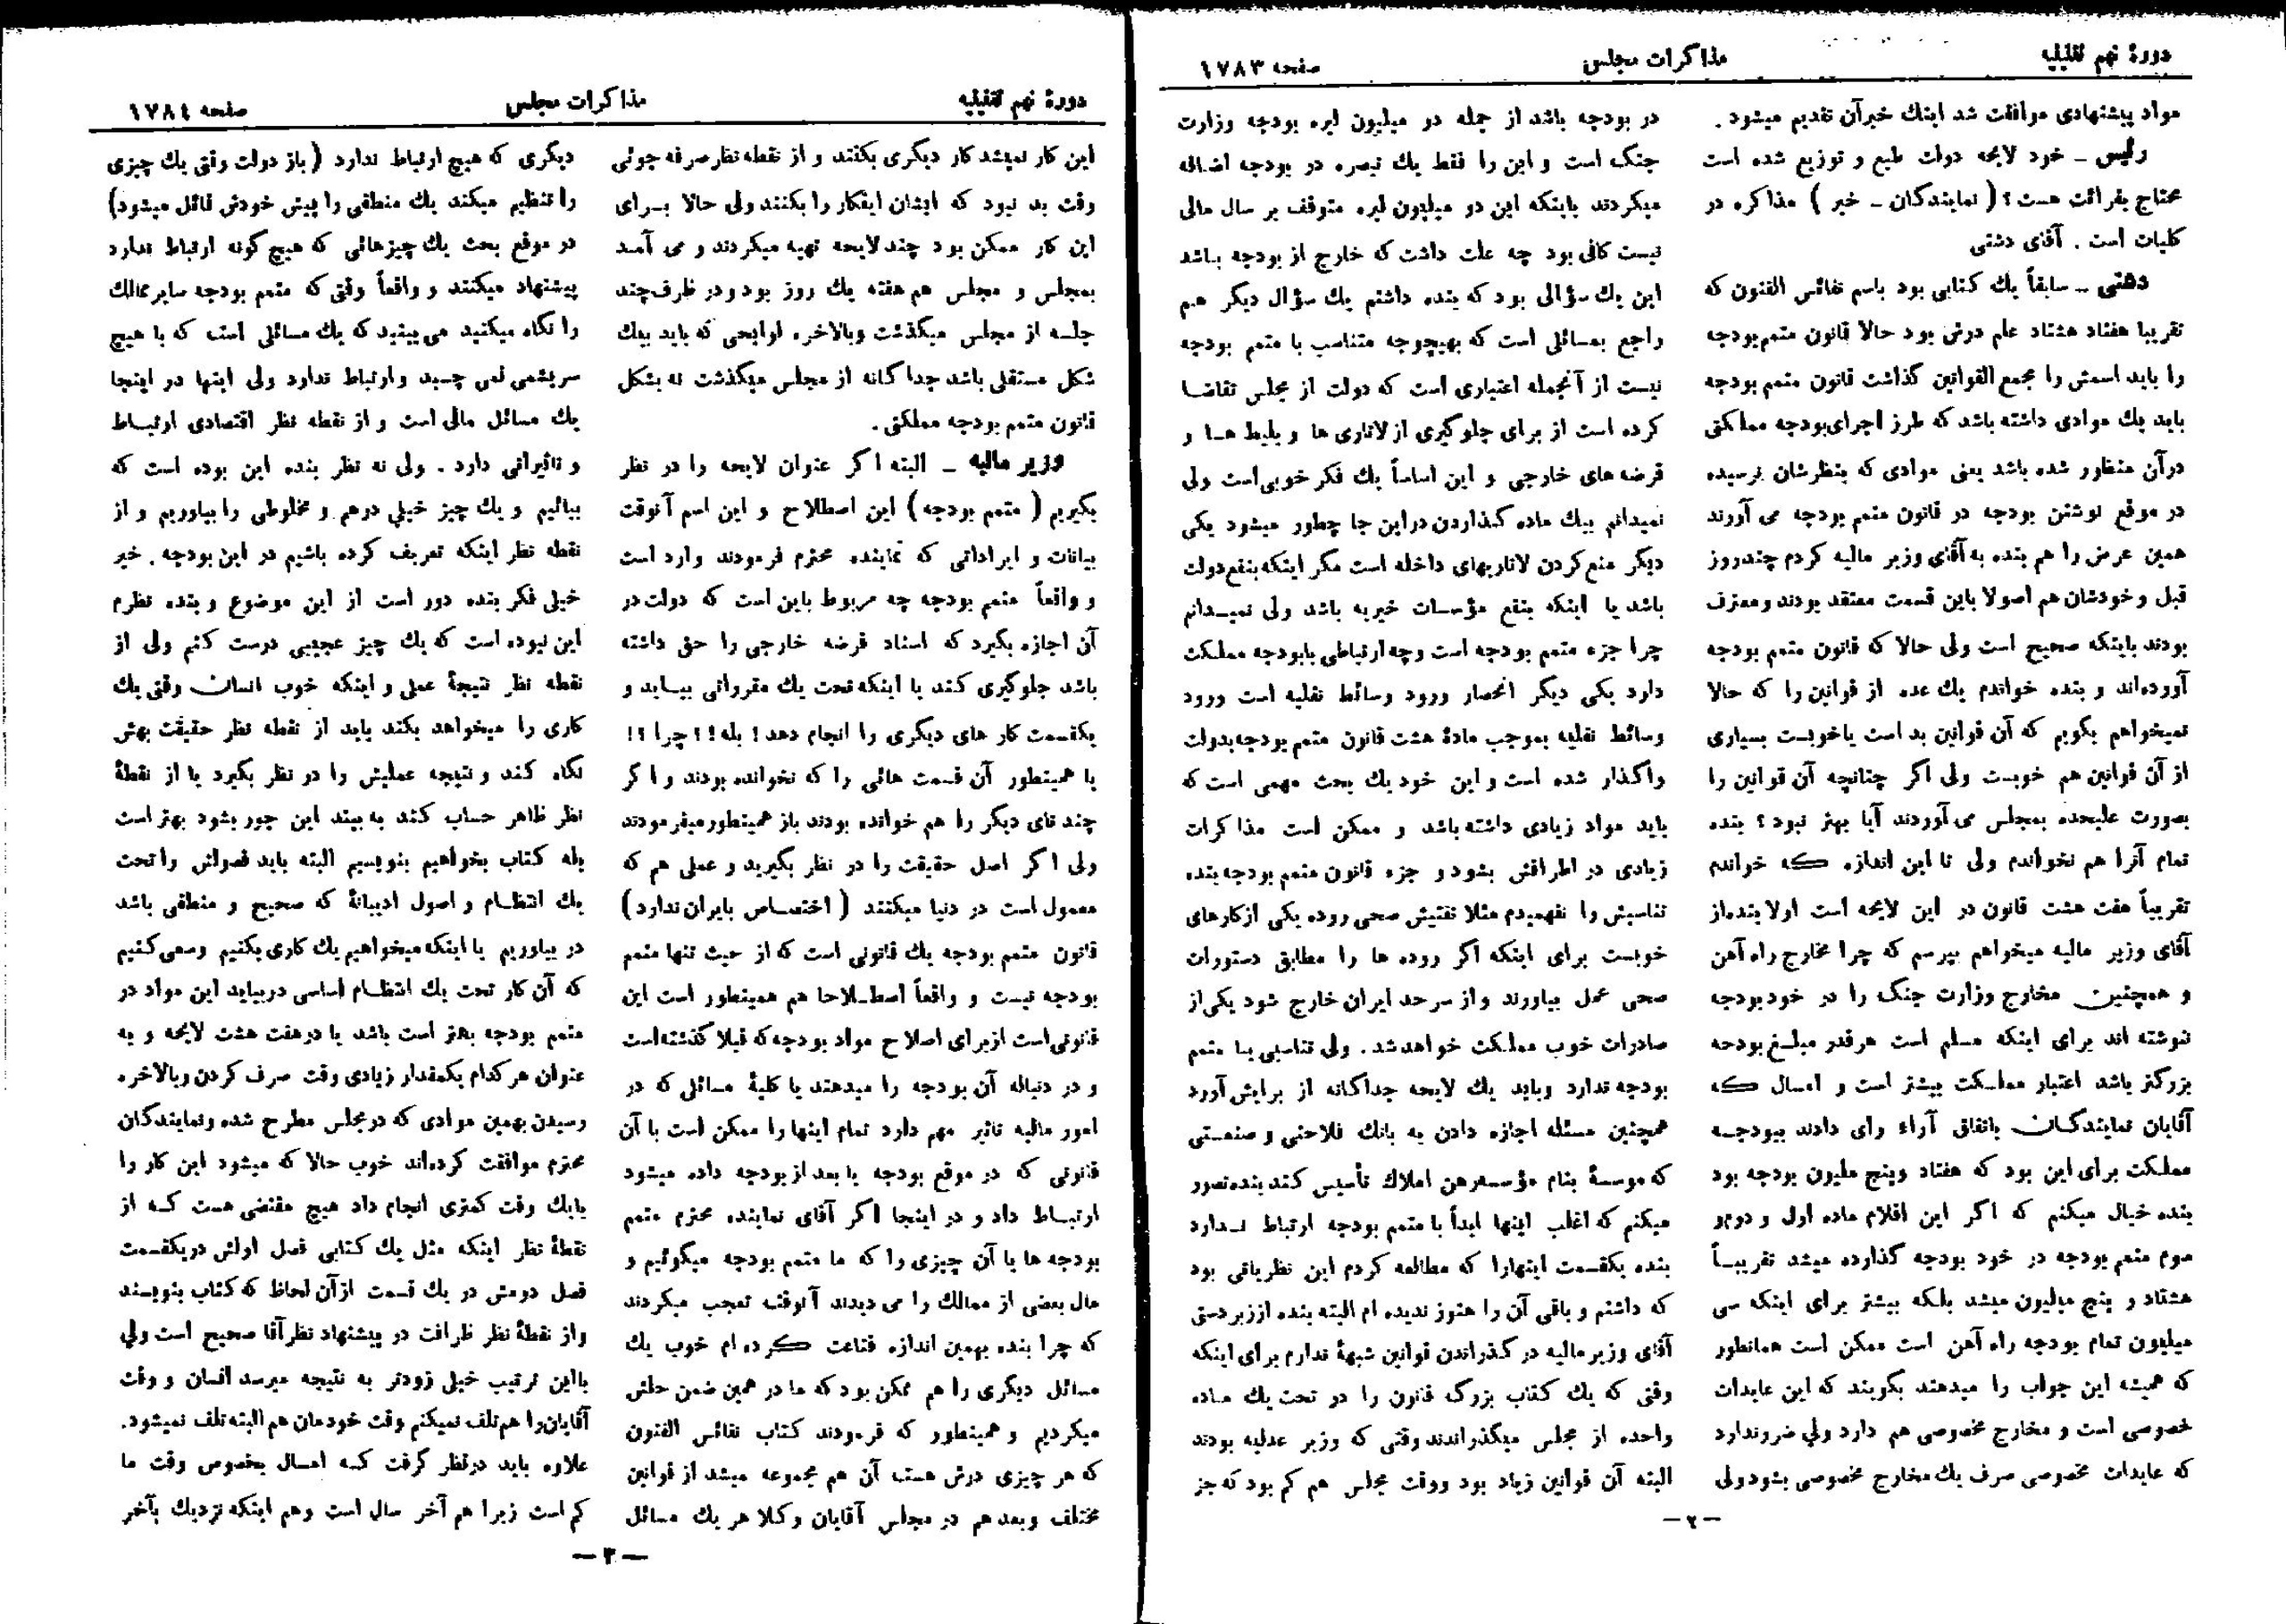 دورهٔ نهم تقنینیه
مذاکرات مجلس
صفحه ۱۷۸۳
مواد پیشنهادی موافقت شد اینك خبرآن تقدیم میشود .
رئیس ـ خود لایحه دولت طبع و توزیع شده است
محتاج بقرائت هست ؟ ( نمایندکان ـ خیر ) مذاکره در
کلیات است . آقای دشتی
دشتی ـ سابقاً یك کتابی بود باسم نفائس الفنون که
تقریبا هفتاد هشتاد علم درش بود حالا قانون متمم بودجه
را باید اسمش را مجمع القوانین گذاشت قانون متمم بودجه
باید یك موادی داشته باشد که طرز اجرای بودجه مملکتی
درآن منظور شده باشد یعنی موادی که بنظرشان نرسیده
در موقع نوشتن بودجه در قانون متمم بودجه می آورند
همین عرض را هم بنده به آقای وزیر مالیه کردم چندروز
قبل و خودشان هم اصولا باین قسمت معتقد بودند ومعترف
بودند باینکه صحیح است ولی حالا که قانون متمم بودجه
آورده‌اند و بنده خواندم یك عده از قوانین را که حالا
نمیخواهم بگویم که آن قوانین بد است یاخوبست بسیاری
از آن قوانین هم خوبست ولی اگر چنانچه آن قوانین را
بصورت علیحده بمجلس می آوردند آیا بهتر نبود ؟ بنده
تمام آنرا هم نخواندم ولی تا این اندازه که خواندم
تقریباً هفت هشت قانون در این لایحه است اولا بنده‌از
آقای وزیر مالیه میخواهم بپرسم که چرا مخارج راه آهن
و همچنین مخارج وزارت جنگ را در خود بودجه
ننوشته اند برای اینکه مسلم است هرقدر مبلغ بودجه
بزرگتر باشد اعتبار مملکت بیشتر است و امسال که
آقایان نمایندگان باتفاق آراء رأی دادند ببودجه
مملکت برای این بود که هفتاد وپنج ملیون بودجه بود
بنده خیال میکنم که اگر این اقلام ماده اول و دوم و
سوم متمم بودجه در خود بودجه گذارده میشد تقریباً
هشتاد و پنج میلیون میشد بلکه بیشتر برای اینکه سی
میلیون تمام بودجه راه آهن است ممکن است همانطور
که همیشه این جواب را میدهند بگویند که این عایدات
خصوصی است و مخارج مخصوصی هم دارد ولی ضروندارد
که عایدات مخصوصی صرف یك مخارج مخصوصی بشود ولی
در بودجه باشد از جمله دو میلیون لیره بودجه وزارت
جنگ است و این را فقط یك تبصره در بودجه اضافه
میکردند باینکه این دو میلیون لیره متوقف بر سال مالی
نیست کافی بود چه علت داشت که خارج از بودجه باشد
این یك سؤالی بود که بنده داشتم یك سؤال دیگر هم
راجع بمسائلی است که بهیچوجه متناسب با متمم بودجه
نیست از آنجمله اعتباری است که دولت از مجلس تقاضا
کرده است از برای جلوگیری از لاتاری ها و بلیط ها و
قرضه های خارجی و این اساساً یك فکر خوبی‌است ولی
نمیدانم بیك ماده گذاردن دراین جا چطور میشود یکی
دیگر منع کردن لاتاریهای داخله است مگر اینکه بنفع دولت
باشد یا اینکه بنفع مؤسسات خیریه باشد ولی نمیدانم
چرا جزء متمم بودجه است وچه ارتباطی بابودجه مملکت
دارد یکی دیگر انحصار ورود وسائط نقلیه است ورود
وسائط نقلیه بموجب مادهٔ هشت قانون متمم بودجه بدولت
واگذار شده است و این خود یك بحث مهمی است که
باید مواد زیادی داشته باشد و ممکن است مذاکرات
زیادی در اطرافش بشود و جزء قانون متمم بودجه بنده
تناسبش را نفهمیدم مثلا تفتیش صحی روده یکی از کارهای
خوبست برای اینکه اگر روده ها را مطابق دستورات
صحی عمل بیاورند و از سرحد ایران خارج شود یکی از
صادرات خوب مملکت خواهدشد . ولی تناسبی با متمم
بودجه ندارد وباید یك لایحه جداگانه از برایش آورد
همچنین مسئله اجازه دادن به بانك فلاحتی و صنعتی
که موسسهٔ بنام مؤسسه رهن املاك تأسیس کند بنده تصور
میکنم که اغلب اینها ابداً با متمم بودجه ارتباط ندارد
بنده یکقسمت اینهارا که مطالعه کردم این نظریاتی بود
که داشتم و باقی آن را هنوز ندیده ام البته بنده از زبردستی
آقای وزیر مالیه در گذراندن قوانین شبههٔ ندارم برای اینکه
وقتی که یك کتاب بزرگ قانون را در تحت یك ماده
واحده از مجلس میگذراندند وقتی که وزیر عدلیه بودند
البته آن قوانین زیاد بود ووقت مجلس هم کم بود که جز
ـ ۲ ـ
دورهٔ نهم تقنینیه
مذاکرات مجلس
صفحه ۱۷۸٤
این کار نمیشد کار دیگری بکنند و از نقطه نظر صرفه جوئی
وقت بد نبود که ایشان اینکار را بکنند ولی حالا برای
این کار ممکن بود چند لایحه تهیه میکردند و می آمد
بمجلس و مجلس هم هفته یك روز بود و در ظرف چند
جلسه از مجلس میگذشت وبالاخره لوایحی که باید بیك
شکل مستقلی باشد جداگانه از مجلس میگذشت نه بشکل
قانون متمم بودجه مملکتی .
وزیر مالیه ـ البته اگر عنوان لایحه را در نظر
بگیریم ( متمم بودجه ) این اصطلاح و این اسم آنوقت
بیانات و ایراداتی که نماینده محترم فرمودند وارد است
و واقعاً متمم بودجه چه مربوط باین است که دولت در
آن اجازه بگیرد که اسناد قرضه خارجی را حق داشته
باشد جلوگیری کند یا اینکه تحت یك مقرراتی بیاید و
یکقسمت کار های دیگری را انجام دهد ! بله !؟ چرا ؟!
یا همینطور آن قسمت هائی را که نخوانده بودند و اگر
چند تای دیگر را هم خوانده بودند باز همینطور میفرمودند
ولی اگر اصل حقیقت را در نظر بگیرید و عملی هم که
معمول است در دنیا میکنند ( اختصاص بایران ندارد )
قانون متمم بودجه یك قانونی است که از حیث تنها متمم
بودجه نیست و واقعاً اصطلاحا هم همینطور است این
قانونی‌است ازبرای اصلاح مواد بودجه که قبلا گذشته‌است
و در دنباله آن بودجه را میدهند یا کلیهٔ مسائلی که در
امور مالیه تاثیر مهم دارد تمام اینها را ممکن است با آن
قانونی که در موقع بودجه یا بعد از بودجه داده میشود
ارتباط داد و در اینجا اگر آقای نماینده محترم متمم
بودجه ها یا آن چیزی را که ما متمم بودجه میگوئیم و
مال بعضی از ممالك را می دیدند آنوقت تعجب میکردند
که چرا بنده بهمین اندازه قناعت کرده ام خوب یك
مسائل دیگری را هم ممکن بود که ما در همین ضمن حلش
میکردیم و همینطور که فرمودند کتاب نفائس الفنون
که هر چیزی درش هست آن هم مجموعه میشد از قوانین
مختلف وبعد هم در مجلس آقایان وکلا هر یك مسائل
دیگری که هیچ ارتباط ندارد ( باز دولت وقتی یك چیزی
را تنظیم میکند یك منطقی را پیش خودش قائل میشود)
در موقع بحث یك چیزهائی که هیچ گونه ارتباط ندارد
پیشنهاد میکنند و واقعاً وقتی که متمم بودجه سایر ممالك
را نگاه میکنید می بینید که یك مسائلی است که با هیچ
سریشمی نمی چسبد و ارتباط ندارد ولی اینها در اینجا
یك مسائل مالی است و از نقطه نظر اقتصادی ارتباط
و تاثیراتی دارد . ولی نه نظر بنده این بوده است که
بیائیم و یك چیز خیلی درهم و مخلوطی را بیاوریم و از
نقطه نظر اینکه تعریف کرده باشیم در این بودجه . خیر
خیلی فکر بنده دور است از این موضوع و بنده نظرم
این نبوده است که یك چیز عجیبی درست کنم ولی از
نقطه نظر نتیجهٔ عملی و اینکه خوب انسان وقتی یك
کاری را میخواهد بکند باید از نقطه نظر حقیقت بهش
نگاه کند و نتیجه عملیش را در نظر بگیرد یا از نقطهٔ
نظر ظاهر حساب کند به بیند این جور بشود بهتر است
بله کتاب بخواهیم بنویسیم البته باید فصولش را تحت
یك انتظام و اصول ادیبانهٔ که صحیح و منطقی باشد
در بیاوریم یا اینکه میخواهیم یك کاری بکنیم وسعی کنیم
که آن کار تحت یك انتظام اساسی دربیاید این مواد در
متمم بودجه بهتر است باشد یا در هفت هشت لایحه و به
عنوان هرکدام یکمقدار زیادی وقت صرف کردن وبالاخره
رسیدن بهمین موادی که درمجلس مطرح شده ونمایندگان
محترم موافقت کرده‌اند خوب حالا که میشود این کار را
بایك وقت کمتری انجام داد هیچ مقتضی هست که از
نقطهٔ نظر اینکه مثل یك کتابی فصل اولش دریکقسمت
فصل دومش در یك قسمت ازآن لحاظ که کتاب بنویسند
واز نقطهٔ نظر ظرافت در پیشنهاد نظر آقا صحیح است ولی
بااین ترتیب خیلی زودتر به نتیجه میرسد انسان و وقت
آقایان را هم تلف نمیکنم وقت خودمان هم البته تلف نمیشود.
علاوه باید درنظر گرفت که امسال بخصوص وقت ما
کم است زیرا هم آخر سال است وهم اینکه نزدیك بآخر
ـ ۳ ـ